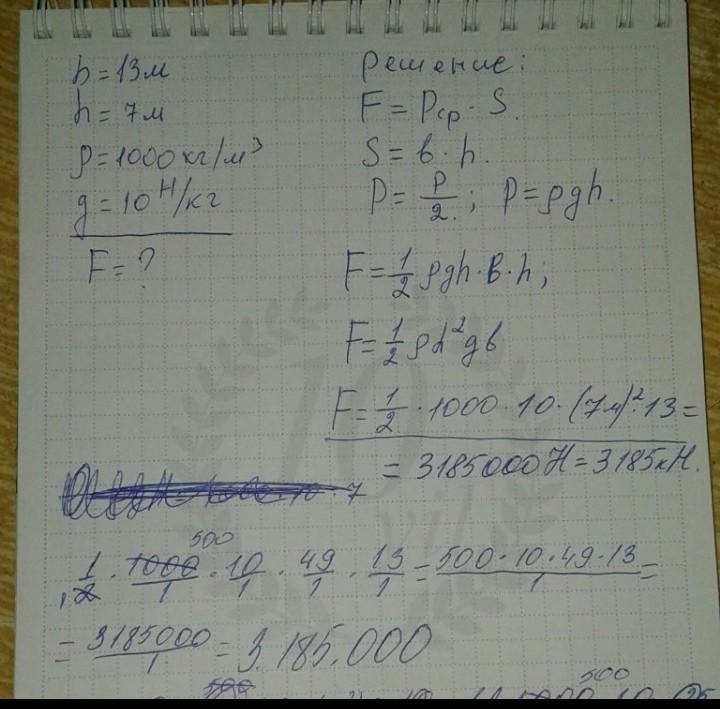 b = 13м
h = 7м
ρ = 1000 кг/м³
g = 10 Н/кг
F = ?
Решение:
F = Pср · S.
S = в · h.
P = P/2. ; P = ρgh.
F = 1/2 ρgh · в · h;
F = 1/2 ρh²gв
F = 1/2 · 1000 · 10 · (7м)² · 13 =
= 3185000 Н = 3185 кН.
500
1/2 · 1000/1 · 10/1 · 49/1 · 13/1 = 500·10·49·13/1 =
= 3185000/1 = 3.185.000
500